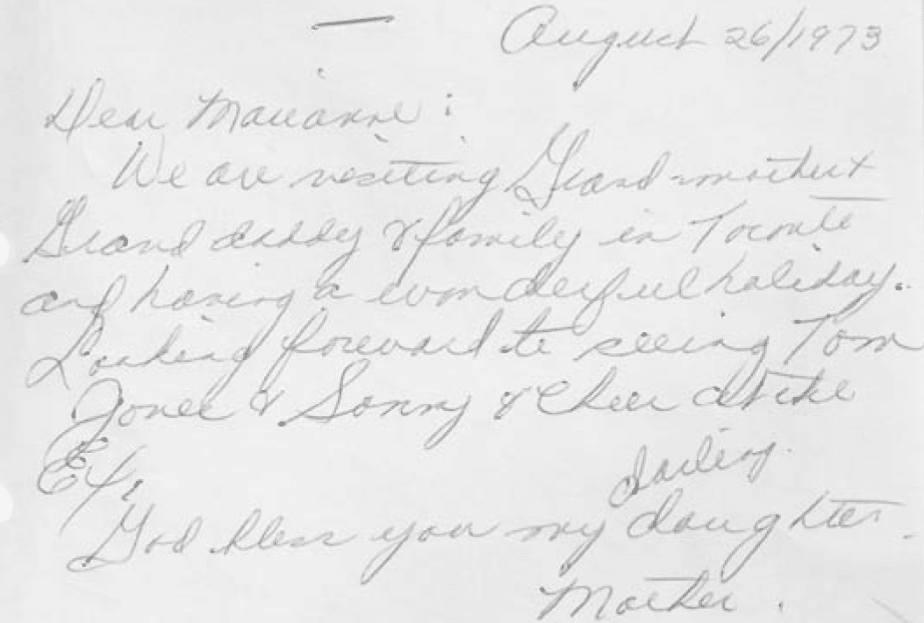 August 26/1973
Dear Marianne :
We are visiting Grand-mother &
Grand daddy & family in Toronto
and having a wonderful holiday.
Looking forward to seeing Tom
Jones & Sonny & Cheer at the
Ex.
darling.
God bless you my daughter.
Mother.